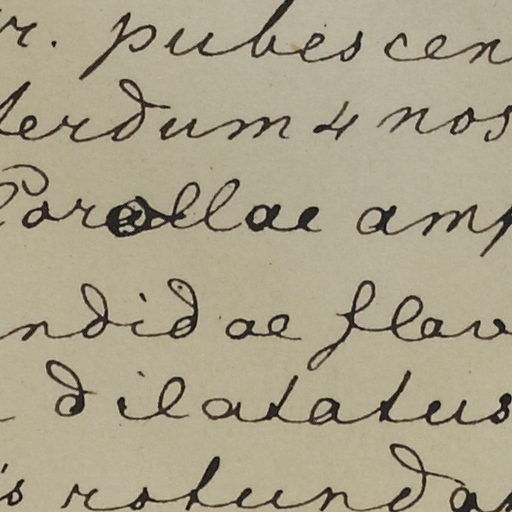 r. pubescen
terdum 4 nos
Corollae amp
ndidae flav
dilatatus
is rotunda